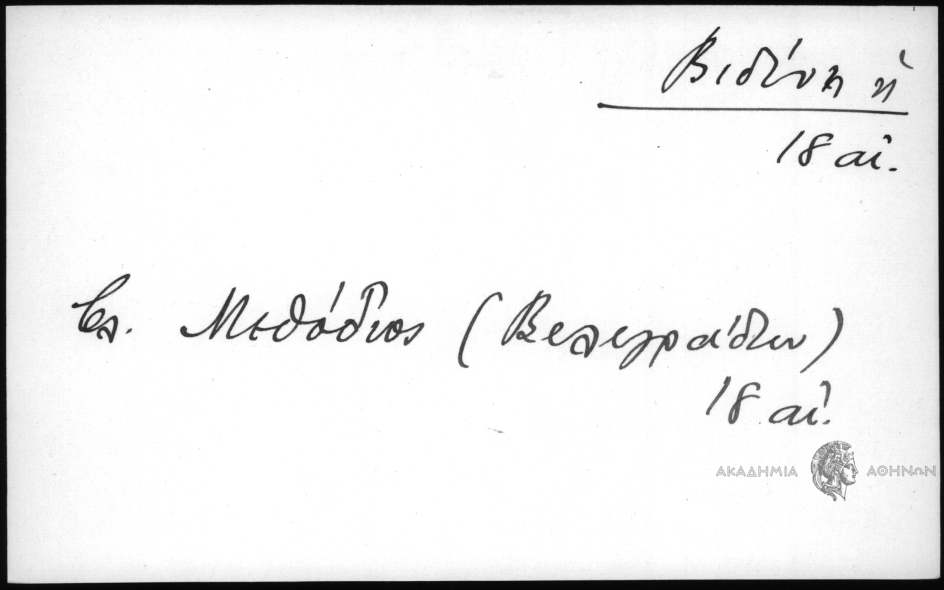 Βιδύνη ἡ
18 αἰ.
Βλ. Μεθόδιος (Βελεγράδων)
18 αἰ.
ΑΚΑΔΗΜΙΑ ΑΘΗΝΩΝ